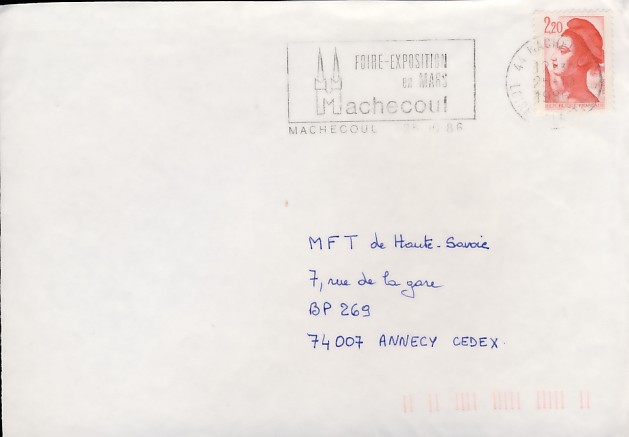 FOIRE-EXPOSITION
en MARS
Machecoul
MACHECOUL 25 86
2,20
44 MACHE
MFT de Haute-Savoie
7, rue de la gare
BP 269
74007 ANNECY CEDEX.